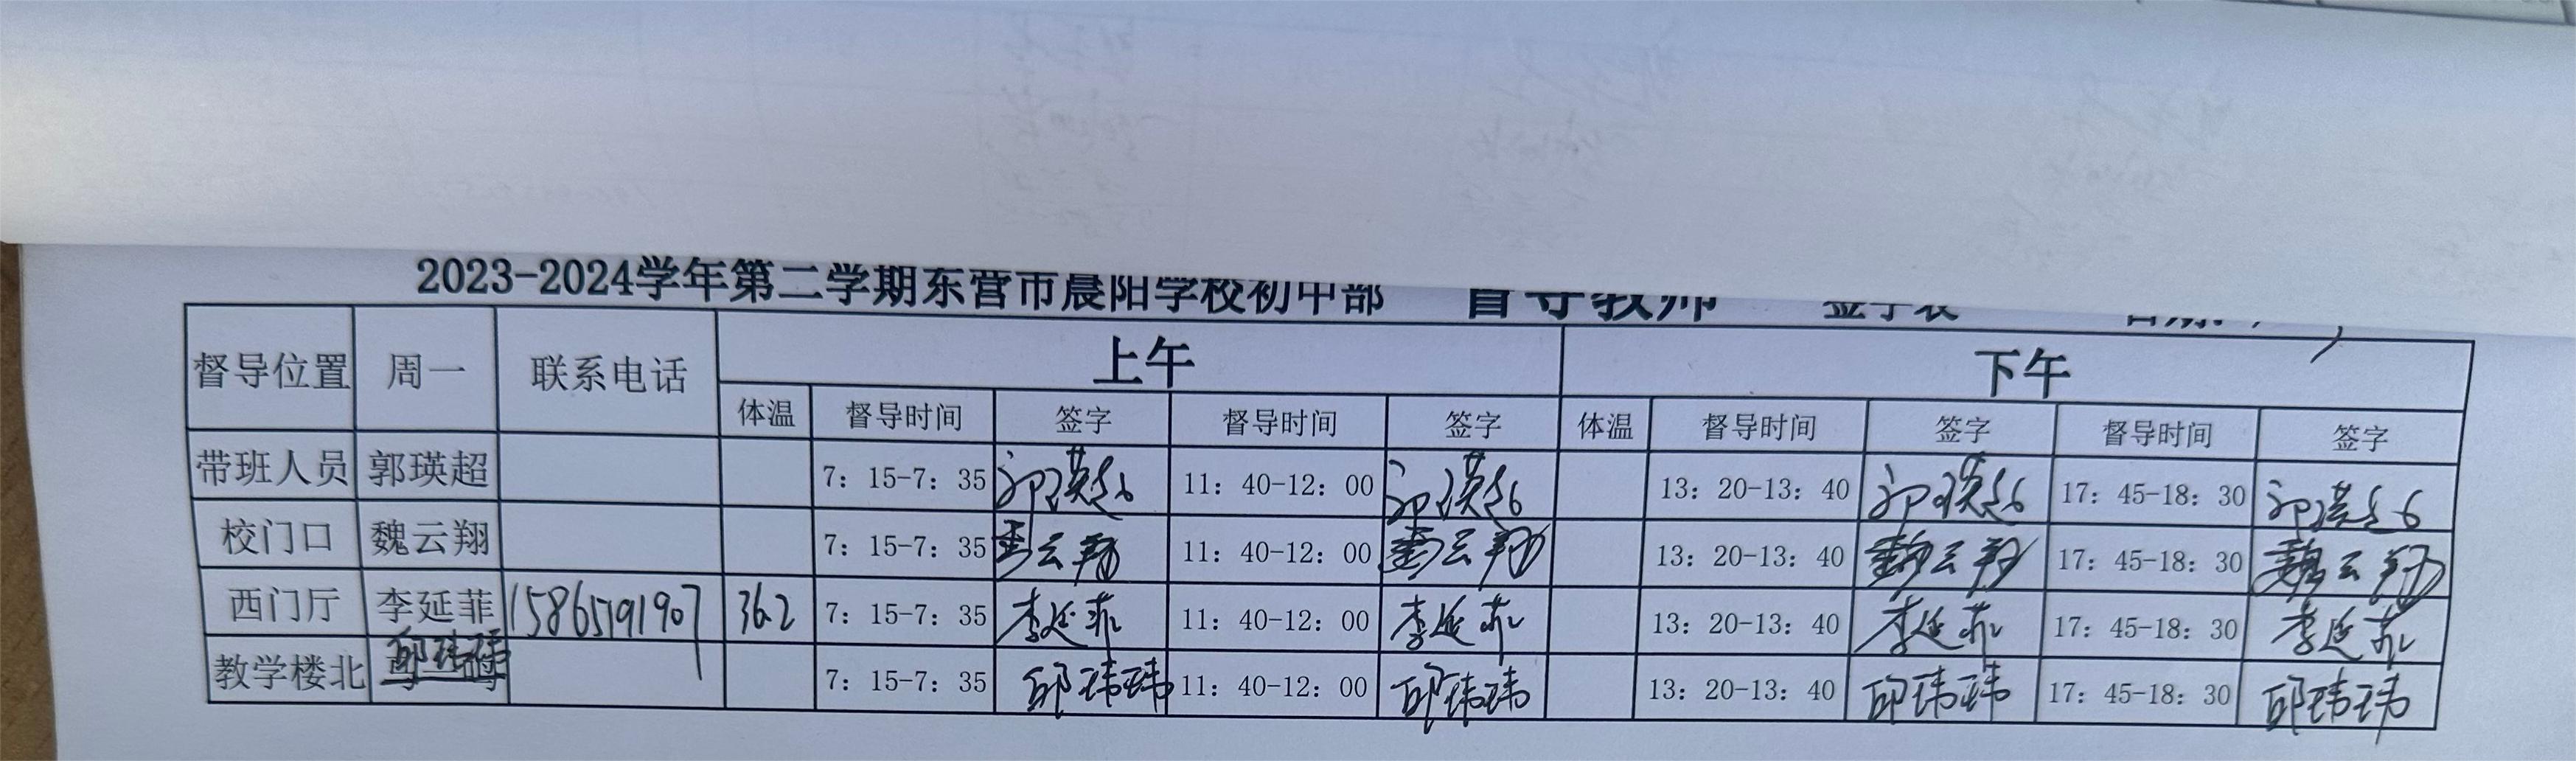 2023-2024学年第二学期东营市晨阳学校初中部 督导教师 签字表 日期:
督导位置 周一 联系电话 上午 下午
体温 督导时间 签字 督导时间 签字 体温 督导时间 签字 督导时间 签字
带班人员 郭瑛超 7: 15-7: 35 郭瑛超 11: 40-12: 00 郭瑛超 13: 20-13: 40 郭瑛超 17: 45-18: 30 郭瑛超
校门口 魏云翔 7: 15-7: 35 魏云翔 11: 40-12: 00 魏云翔 13: 20-13: 40 魏云翔 17: 45-18: 30 魏云翔
西门厅 李延菲 15865791907 36.2 7: 15-7: 35 李延菲 11: 40-12: 00 李延菲 13: 20-13: 40 李延菲 17: 45-18: 30 李延菲
教学楼北 邱玮玮 7: 15-7: 35 邱玮玮 11: 40-12: 00 邱玮玮 13: 20-13: 40 邱玮玮 17: 45-18: 30 邱玮玮